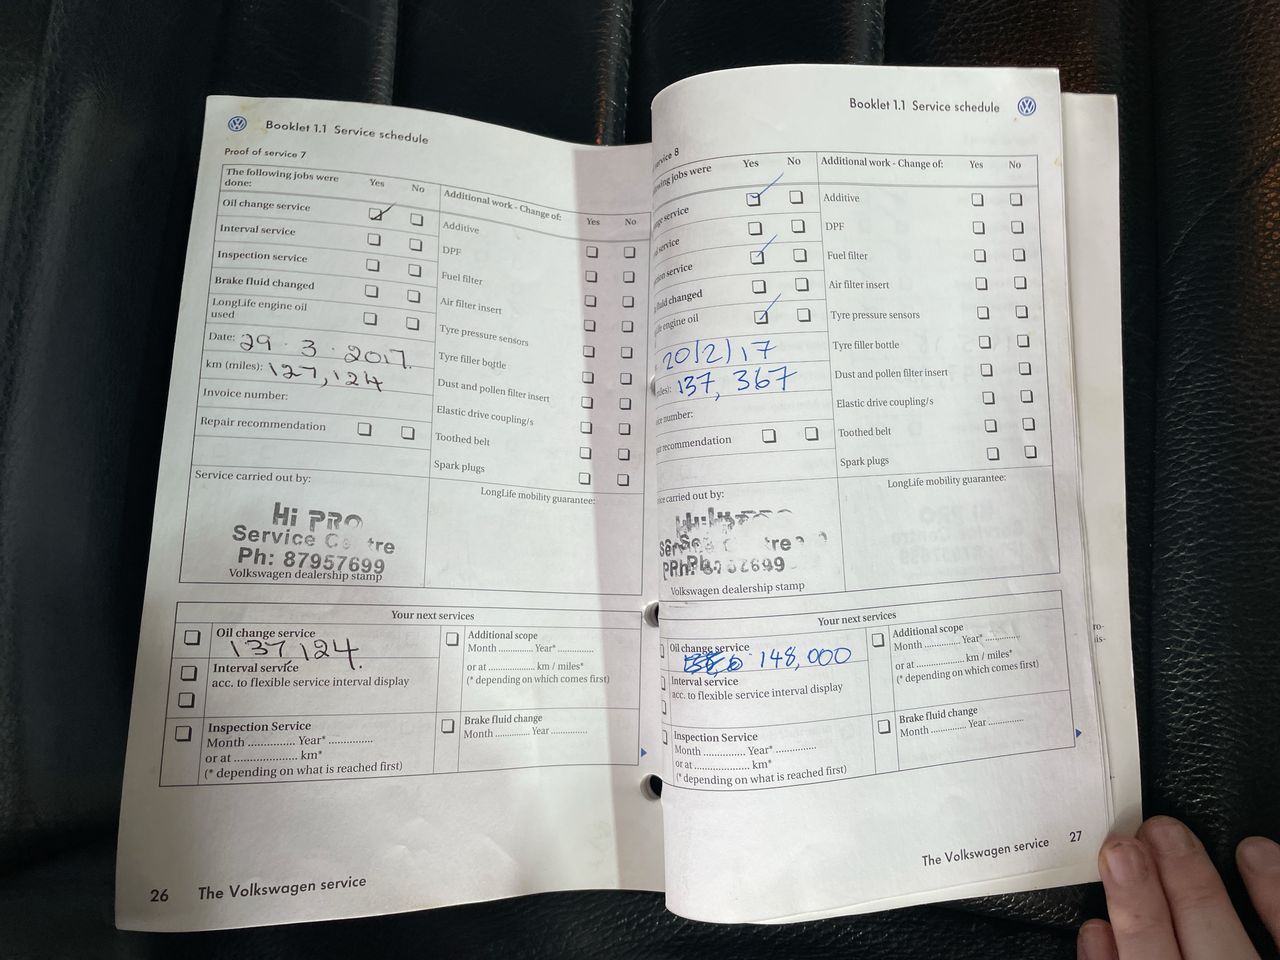 Booklet 1.1 Service schedule
Proof of service 7
The following jobs were done:
Yes No
Additional work - Change of:
Yes No
Oil change service
Interval service
Inspection service
Brake fluid changed
LongLife engine oil used
Date: 29 . 3 . 2017.
km (miles): 127,124
Invoice number:
Repair recommendation
Additive
DPF
Fuel filter
Air filter insert
Tyre pressure sensors
Tyre filler bottle
Dust and pollen filter insert
Elastic drive coupling/s
Toothed belt
Spark plugs
Service carried out by:
Hi PRO
Service C tre
Ph: 87957699
Volkswagen dealership stamp
LongLife mobility guarantee:
Your next services
Oil change service
137,124.
Interval service
acc. to flexible service interval display
Inspection Service
Month .............. Year* ..............
or at .................... km*
(* depending on what is reached first)
Additional scope
Month ........... Year* ...........
or at .................... km / miles*
(* depending on which comes first)
Brake fluid change
Month ........... Year ...........
26 The Volkswagen service
Booklet 1.1 Service schedule
service 8
owing jobs were
Yes No
Additional work - Change of:
Yes No
nge service
l service
tion service
fluid changed
ife engine oil
20/2/17
iles): 137, 367
ice number:
air recommendation
Additive
DPF
Fuel filter
Air filter insert
Tyre pressure sensors
Tyre filler bottle
Dust and pollen filter insert
Elastic drive coupling/s
Toothed belt
Spark plugs
ice carried out by:
Volkswagen dealership stamp
LongLife mobility guarantee:
Your next services
Oil change service
148,000
Interval service
acc. to flexible service interval display
Inspection Service
Month .............. Year* ..............
or at .................... km*
(* depending on what is reached first)
Additional scope
Month ........... Year* ...........
or at .................... km / miles*
(* depending on which comes first)
Brake fluid change
Month ........... Year ...........
The Volkswagen service 27